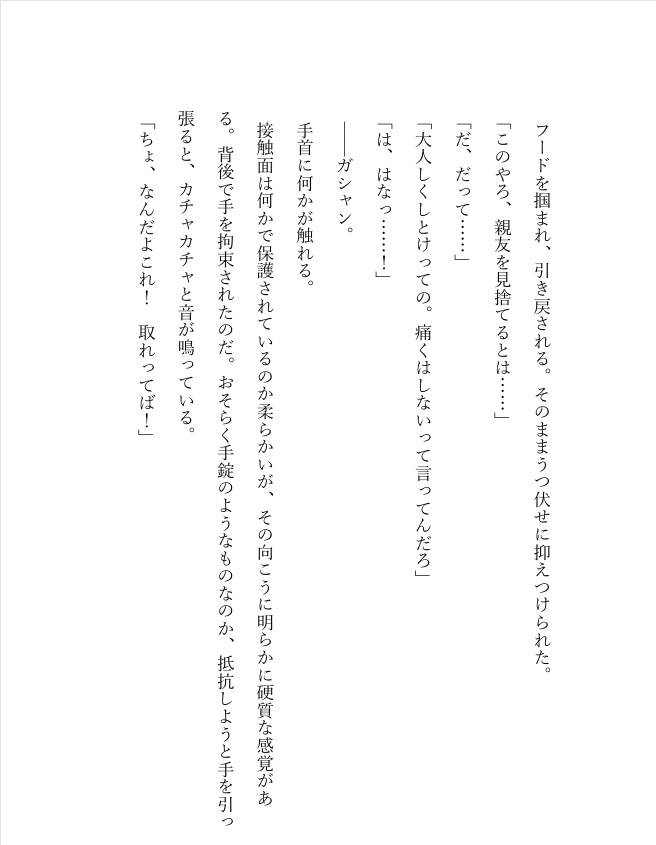 フードを掴まれ、引き戻される。そのままうつ伏せに抑えつけられた。
「このやろ、親友を見捨てるとは……」
「だ、だって……」
「大人しくしとけっての。痛くはしないって言ってんだろ」
「は、はなっ……！」
――ガシャン。
手首に何かが触れる。
接触面は何かで保護されているのか柔らかいが、その向こうに明らかに硬質な感覚があ
る。背後で手を拘束されたのだ。おそらく手錠のようなものなのか、抵抗しようと手を引っ
張ると、カチャカチャと音が鳴っている。
「ちょ、なんだよこれ！　取れってば！」